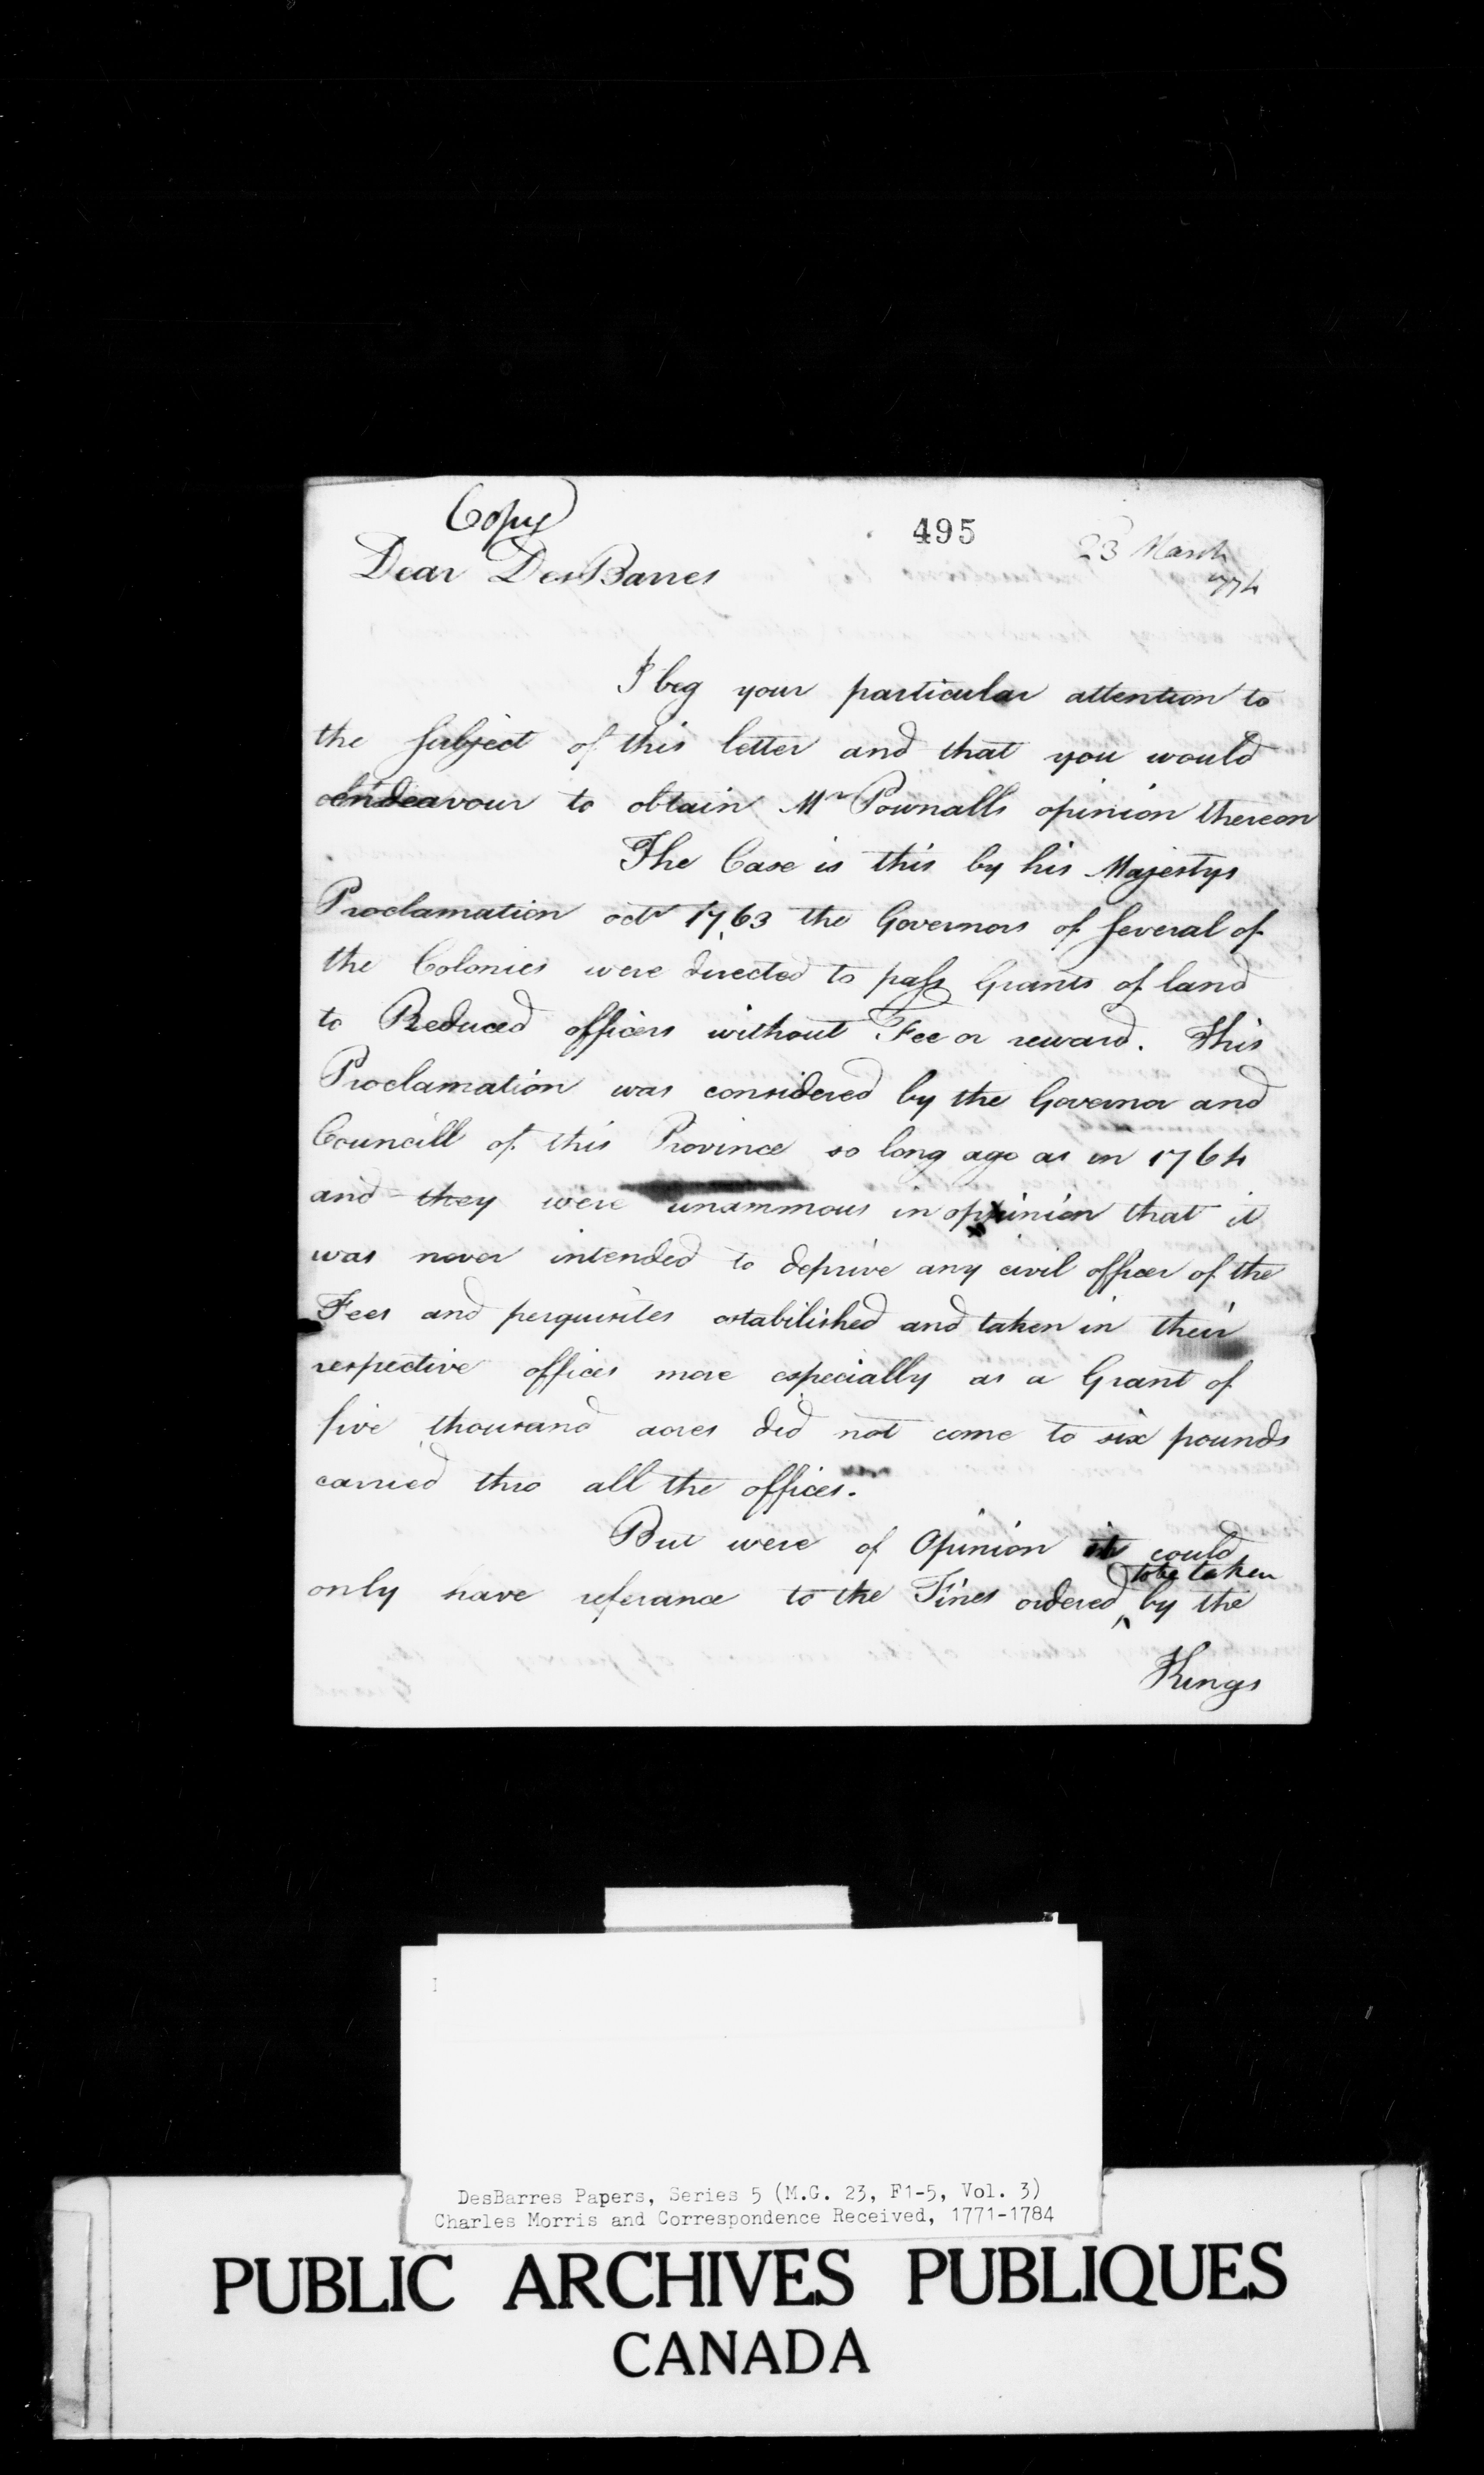 Copy
495
23 March
774
Dear DesBarres
I beg your particular attention to
the subject of this letter and that you would
endeavour to obtain Mr Pownalls opinion thereon
The Case is this by his Majestys
Proclamation octr 1763 the Governors of several of
the Colonies were directed to pass Grants of land
to Reduced officers without Fee or reward. This
Proclamation was considered by the Governor and
Councill of this Province so long ago as in 1764
and they were unanimous in oppinion that it
was never intended to deprive any civil officer of the
Fees and perquisites establilished and taken in their
respective offices more especially as a Grant of
five thousand acres did not come to six pounds
carried thro all the offices.
But were of Opinion it could
to be taken
only have referance to the Fines ordered by the
Kings
DesBarres Papers, Series 5 (M.G. 23, F1-5, Vol. 3)
Charles Morris and Correspondence Received, 1771-1784
PUBLIC ARCHIVES PUBLIQUES
CANADA